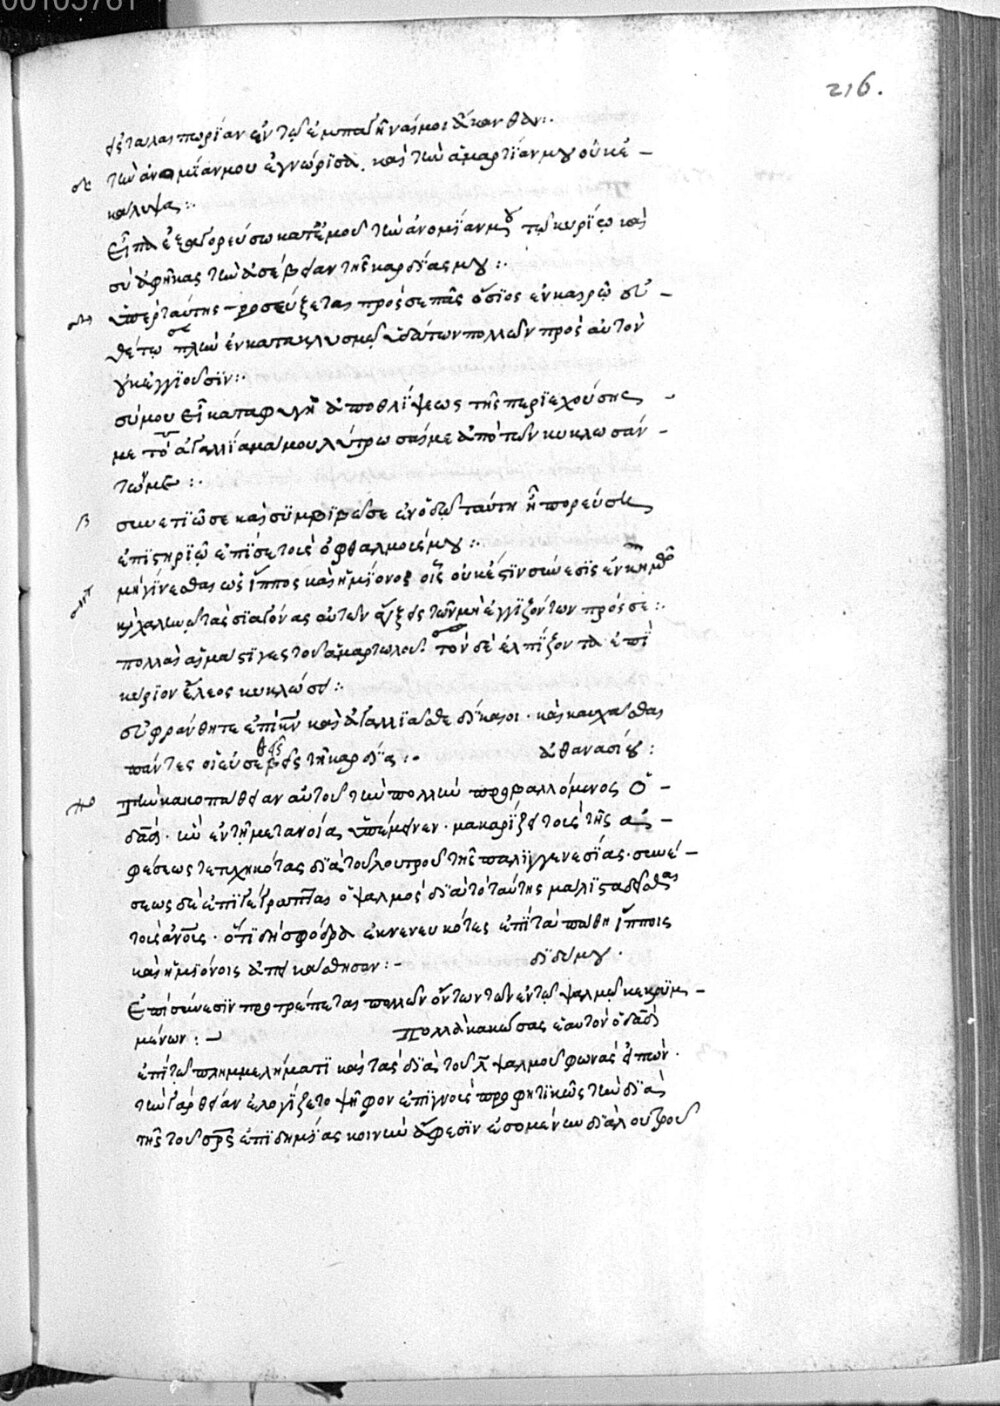 00103761
216.
εἰς ταλαιπωρίαν ἐν τῷ ἐμπαγῆναί μοι ἄκανθαν:·
τὴν ἀνομίαν μου ἐγνώρισα, καὶ τὴν ἁμαρτίαν μου οὐκ ἐ-
κάλυψα:·
εἶπα ἐξαγορεύσω κατ' ἐμοῦ τὴν ἀνομίαν μου τῷ κυρίῳ καὶ
σὺ ἀφῆκας τὴν ἀσέβειαν τῆς καρδίας μου:·
ὑπὲρ ταύτης προσεύξεται πρός σε πᾶς ὅσιος ἐν καιρῷ εὐ-
θέτῳ πλὴν ἐν κατακλυσμῷ ὑδάτων πολλῶν πρὸς αὐτὸν
οὐκ ἐγγιοῦσιν:·
σύ μου εἶ καταφυγὴ ἀπὸ θλίψεως τῆς περιεχούσης
με τὸ ἀγαλλίαμά μου λύτρωσαί με ἀπὸ τῶν κυκλωσάν-
των με:·
β συνετιῶ σε καὶ συμβιβῶ σε ἐν ὁδῷ ταύτῃ ᾗ πορεύσῃ
ἐπιστηριῶ ἐπὶ σὲ τοὺς ὀφθαλμούς μου:·
μὴ γίνεσθαι ὡς ἵππος καὶ ἡμίονος οἷς οὐκ ἔστιν σύνεσις ἐν κημῷ
κ χαλινῷ τὰς σιαγόνας αὐτῶν ἄγξεις τῶν μὴ ἐγγιζόντων πρός σε:·
πολλαὶ αἱ μάστιγες τοῦ ἁμαρτωλοῦ τὸν δὲ ἐλπίζοντα ἐπὶ
κύριον ἔλεος κυκλώσει:·
εὐφράνθητε ἐπὶ κν καὶ ἀγαλλιᾶσθε δίκαιοι· καὶ καυχᾶσθαι
πάντες οἱ εὐθεῖς τῇ καρδίᾳ:· ἀθανασίου:
τὴν κακοπάθειαν αὐτοῦ τὴν πολλὴν προβαλλόμενος ὁ
δαδ· ἣν ἐν τῇ μετανοίᾳ ὑπέμεινεν· μακαρίζει τοὺς τῆς ἀ-
φέσεως τετυχηκότας διὰ τοῦ λουτροῦ τῆς παλιγγενεσίας· συνέ-
σεως δὲ ἐπιγέγραπται ὁ ψαλμὸς διὰ τὸ ταύτης μάλιστα δεῖσθαι
τοὺς ἀνους· ὅτι δὴ σφόδρα ἐκνενευκότες ἐπὶ τὰ πάθη ἵπποις
καὶ ἡμιόνοις ἀπεικάσθησαν:- διδύμου·
ἐπὶ σύνεσιν προτρέπεται πολλῶν ὄντων τῶν ἐν τῷ ψαλμῷ κεκρυμ-
μένων:- πολλὰ κακώσας ἑαυτὸν ὁ δαδ
ἐπὶ τῷ πλημμελήματι καὶ τὰς διὰ τοῦ λ ψαλμοῦ φωνὰς εἰπών·
τὴν γὰρ θείαν ἐλογίζετο ψῆφον ἐπιγνοὺς προφητικῶς τὴν διὰ
τῆς τοῦ σρς ἐπιδημίας κοινὴν ἄφεσιν ἐσομένην διὰ λουτροῦ